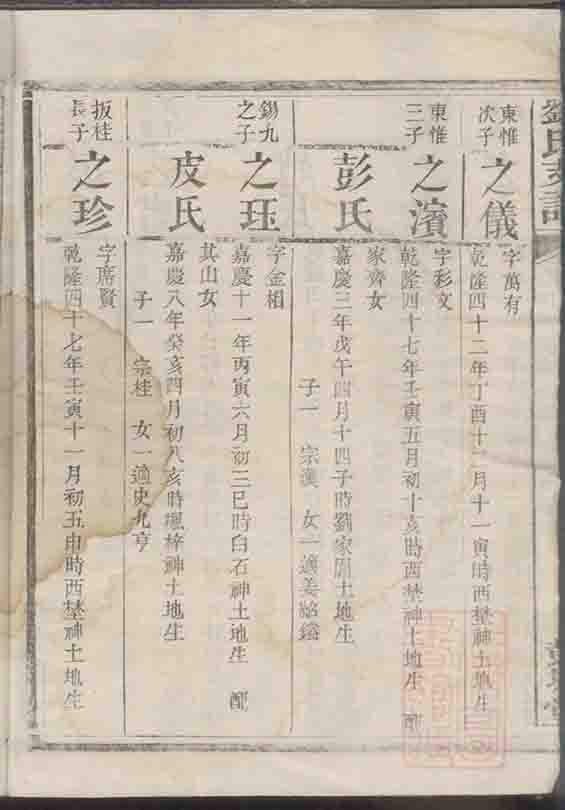 劉氏支譜
東惟
次子
之儀
字萬有
乾隆四十二年丁酉十二月十一寅時西塋神土地生
東惟
三子
之濱
字彩文
乾隆四十七年壬寅五月初十亥時西塋神土地生 配
彭氏
家齊女
嘉慶三年戊午四月十四子時劉家園土地生
子一 宗漢 女一適姜
錫九
之子
之珏
字金相
嘉慶十一年丙寅六月初三巳時白石神土地生 配
皮氏
其山女
嘉慶八年癸亥四月初八亥時楓梓神土地生
子一 宗桂 女一適史九亨
扳桂
長子
之珍
字席賢
乾隆四十七年壬寅十一月初五申時西塋神土地生